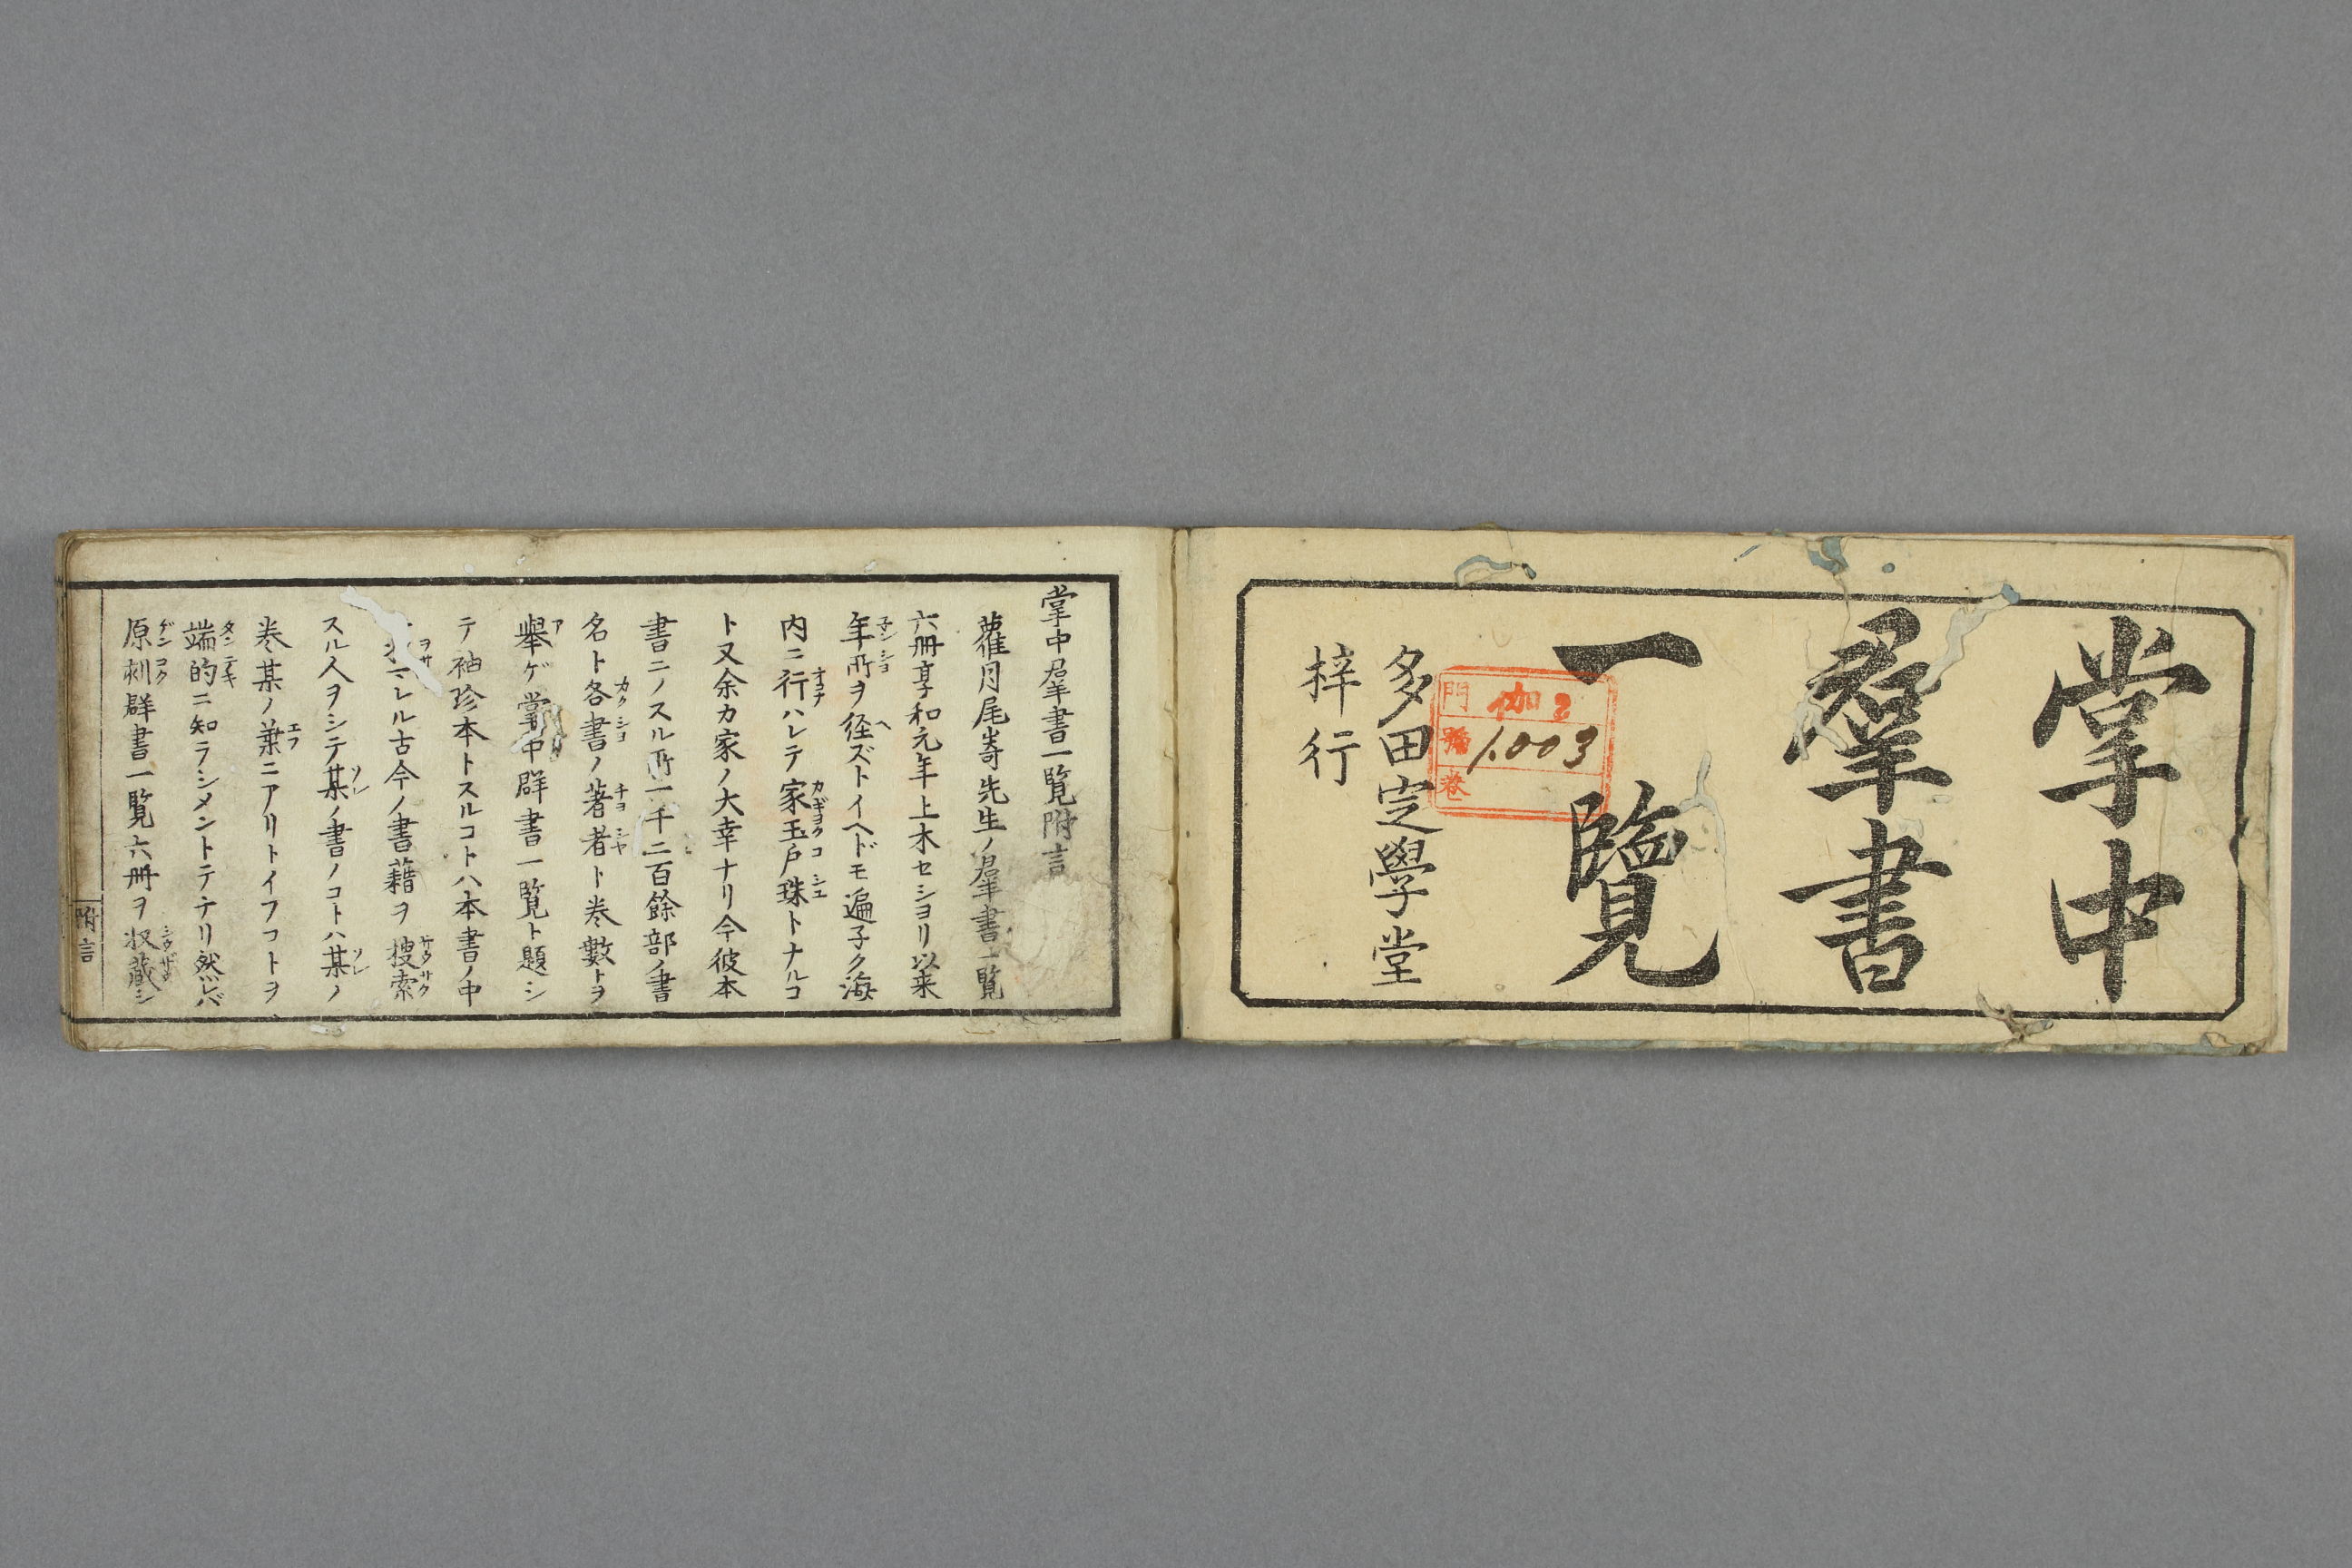 掌中
羣書
一覽
多田定學堂
梓行
門 伽2
號 1.003
卷
掌中羣書一覧附言
蘿月尾嵜先生ノ羣書一覧
六冊享和元年上木セショリ以来
年所ヲ径ズトイヘドモ遍子ク海
内ニ行ハレテ家玉戸珠トナルコ
ト又余カ家ノ大幸ナリ今彼本
書ニノスル所一千二百餘部ノ書
名ト各書ノ著者ト巻數トヲ
擧ゲ掌中群書一覧ト題シ
テ袖珍本トスルコトハ本書ノ中
レル古今ノ書藉ヲ捜索
スル人ヲシテ某ノ書ノコトハ某ノ
巻某ノ葉ニアリトイフコトヲ
端的ニ知ラシメントテナリ然レバ
原刻群書一覧六冊ヲ収蔵シ
附言